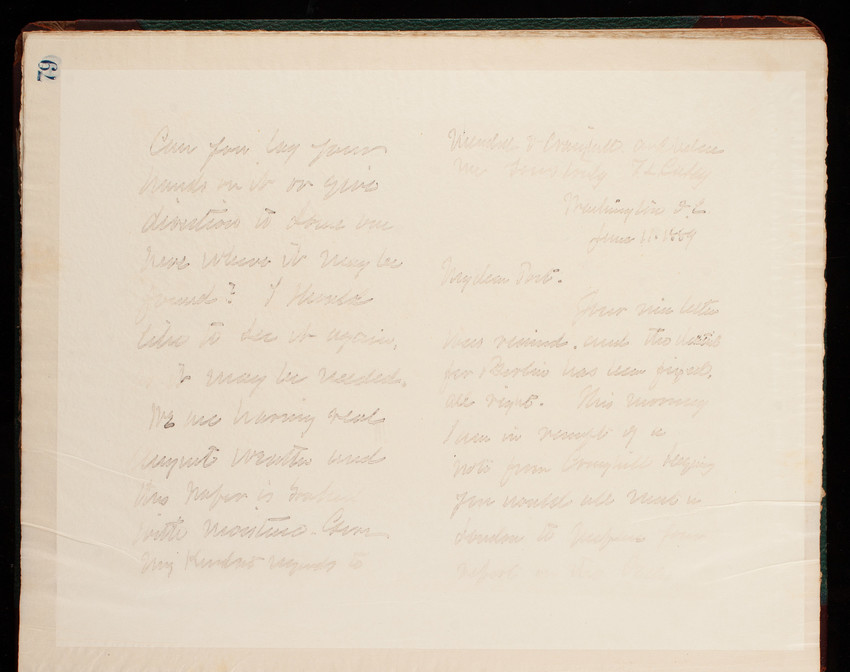 79
Can you lay your
hands on it or give
direction to some one
here where it may be
found? I should
like to see it again.
It may be needed.
We are having real
August weather and
this paper is soaked
with moisture. Give
my kindest regards to
Mendell & Craighill and believe
me Yours truly
Washington D.C.
June 11. 1889
My dear Post.
Your nice letter
was received, and the
for Berlin has been fixed,
all right. This morning
I am in receipt of a
note from Craighill hoping
you would all meet in
London to prepare your
report on the